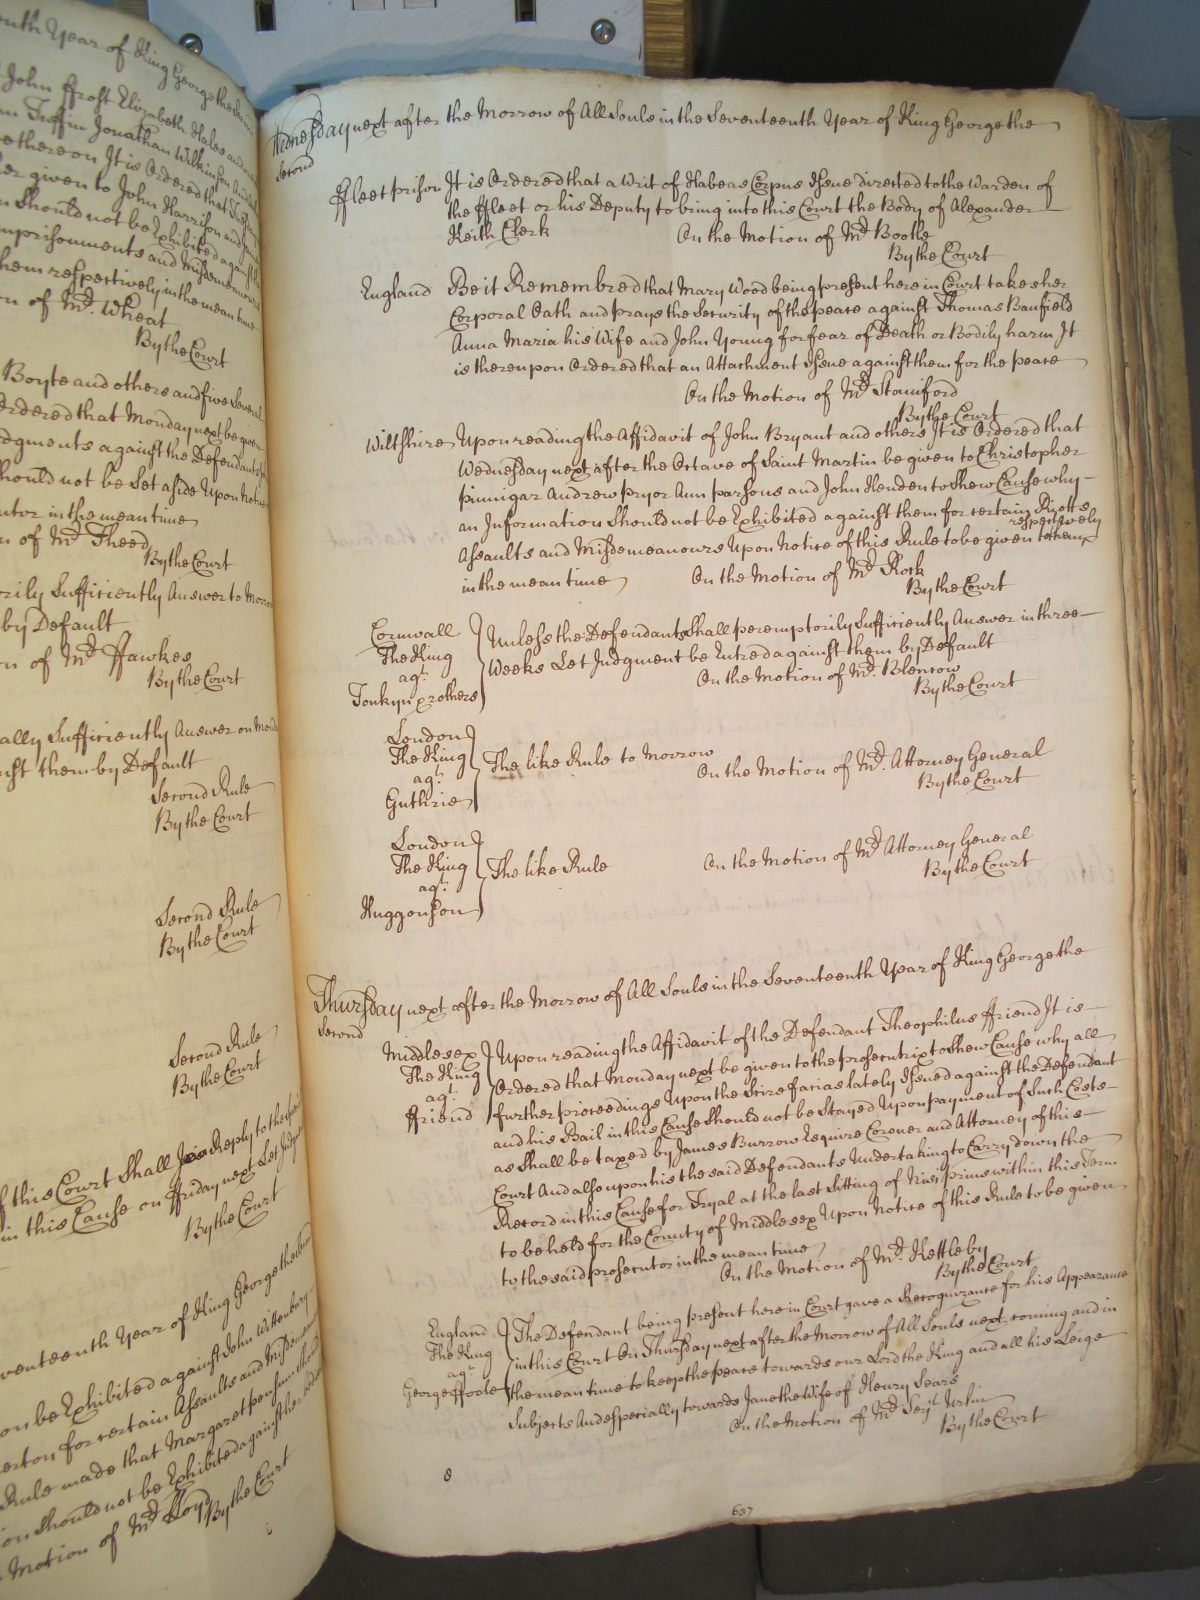 enth Year of King George the
John ffrost Elizabeth Hales
Jonathan Wilkinson
thereon It is Ordered that
given to John Harrison and
should not be Exhibited against
mprisonments and Misdemeanours
hem respectively in the mean time
on of Mr. Wheat
By the Court
Boyte and others and five Several
Ordered that Monday next be given
dgments against the Defendants
hould not be Set aside Upon Notice
utor in the mean time
n of Mr Theed
By the Court
rily Sufficiently Answer to Morrow
by Default
on of Mr Hawkes
By the Court
ally Sufficiently Answer on
nst them by Default
Second Rule
By the Court
Second Rule
By the Court
Second Rule
By the Court
f this Court Shall Reply to the
in this Cause on ffriday next Let
By the Court
venteenth Year of King George the
on be Exhibited against John Wittenbury
erton for certain Assaults and
Rule made that Margaret
on should not be Exhibited against her
Motion of Mr Lloyd
By the Court
Wednesday next after the Morrow of All Souls in the Seventeenth Year of King George the
Second
ffleet prison It is Ordered that a Writ of Habeas Corpus Issue directed to the Warden of
the ffleet or his Deputy to bring into this Court the Body of Alexander
Keith Clerk On the Motion of Mr Bootle
By the Court
England Be it Remembred that Mary Wood being present here in Court takes her
Corporal Oath and prays the Security of the peace against Thomas Banfield
Anna Maria his Wife and John Young for fear of Death or Bodily harm It
is thereupon Ordered that an Attachment Issue against them for the peace
On the Motion of Mr Staniford
By the Court
Wiltshire Upon reading the Affidavit of John Bryant and others It is Ordered that
Wednesday next after the Octave of Saint Martin be given to Christopher
pinnigar Andrew pryor Ann parsons and John Henden to Shew Cause why
an Information Should not be Exhibited against them for certain Riotts
Assaults and Misdemeanours Upon Notice of this Rule to be given to them respectively
in the mean time On the Motion of Mr Rock
By the Court
Cornwall
The King
agt.
Tonkyn & others
Unless the Defendants Shall peremptorily Sufficiently Answer in three
Weeks Let Judgment be Entred against them by Default
On the Motion of Mr. Blencow
By the Court
London
The King
agt.
Guthrie
The like Rule to Morrow
On the Motion of Mr. Attorney General
By the Court
London
The King
agt.
Huggonson
The like Rule
On the Motion of Mr Attorney General
By the Court
Thursday next after the Morrow of All Souls in the Seventeenth Year of King George the
Second
Middlesex
The King
agt.
ffriend
Upon reading the Affidavit of the Defendant Theophilus ffriend It is
Ordered that Monday next be given to the prosecutrix to Shew Cause why all
further proceedings Upon the Scire facias lately Issued against the Defendant
and his Bail in this Cause Should not be Stayed Upon payment of Such Costs
as Shall be taxed by James Burrow Esquire Coroner and Attorney of this
Court And also upon his the said Defendants Undertaking to Carry down the
Record in this Cause for Tryal at the last Sitting of Nisi prius within this Term
to be held for the County of Middlesex Upon Notice of this Rule to be given
to the said prosecutor in the mean time
On the Motion of Mr. Kettleby
By the Court
England
The King
agt.
George ffoote
The Defendant being present here in Court gave a Recognizance for his Appearance
in this Court On Thursday next after the Morrow of All Souls next coming and in
the mean time to keep the peace towards our Lord the King and all his Leige
Subjects And especially towards Jane the Wife of Henry Sears
On the Motion of Mr Serjt. Urlin
By the Court
637